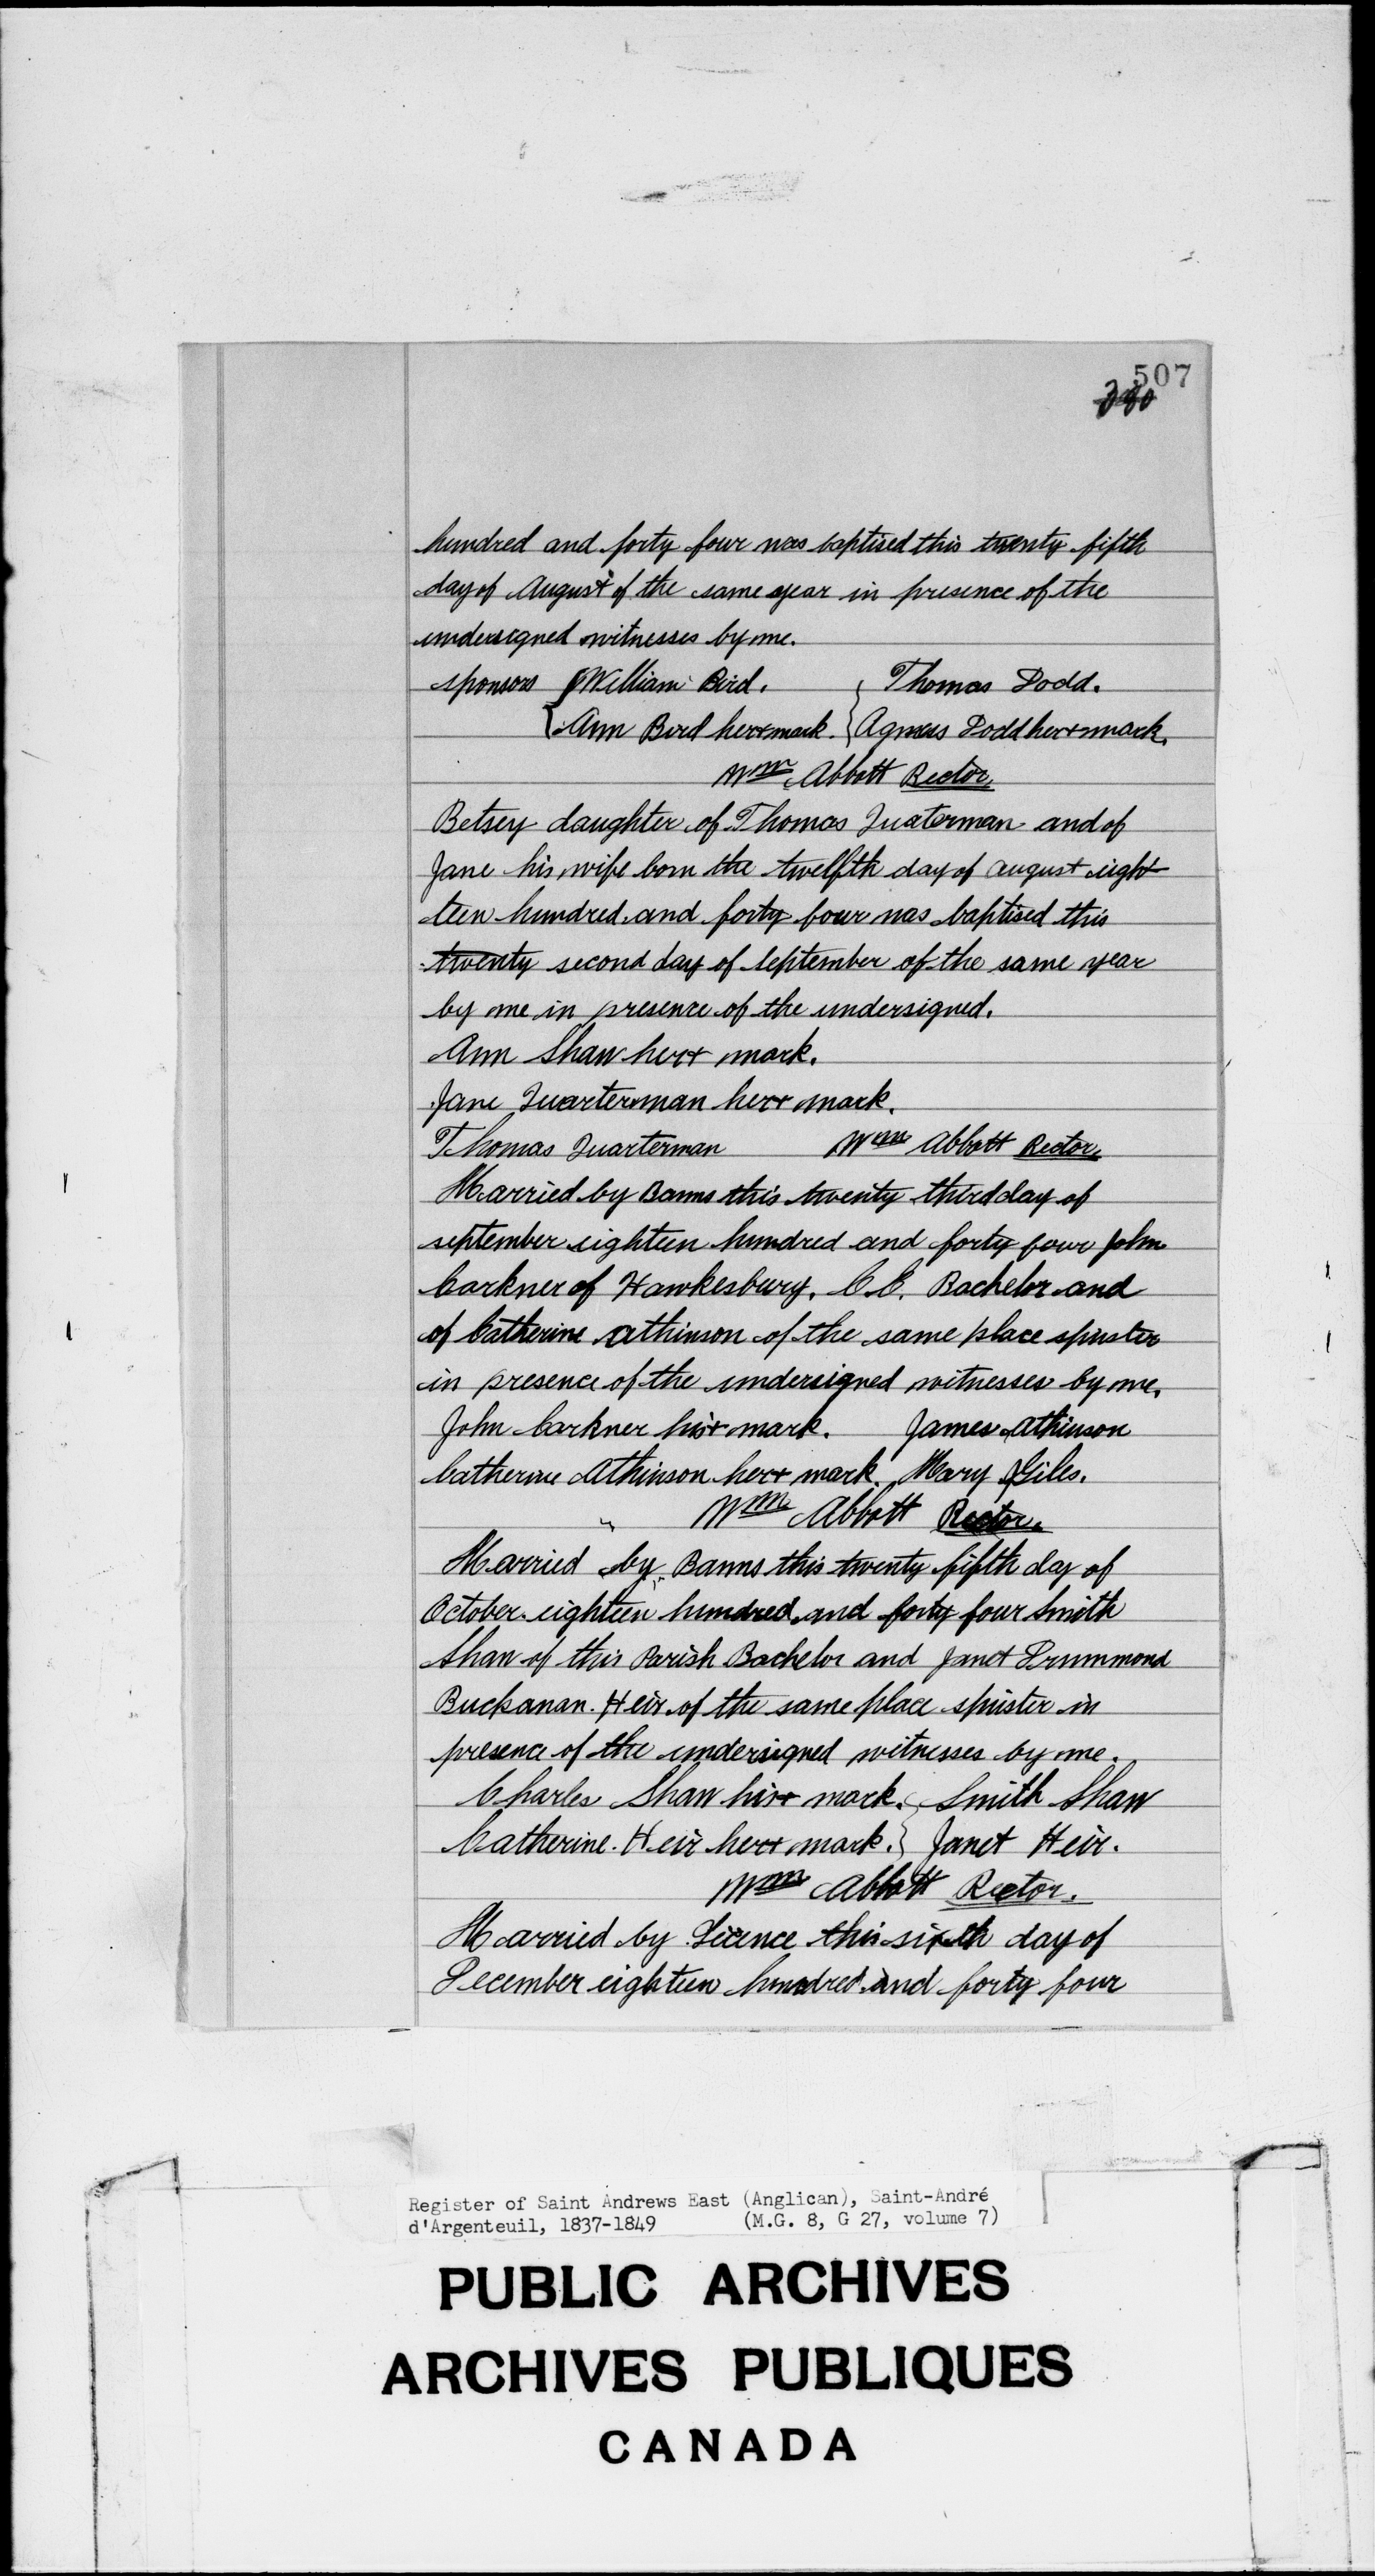 507
380
hundred and forty four was baptised this twenty fifth
day of August of the same year in presence of the
undersigned witnesses by me.
sponsors { William Bird. { Thomas Dodd.
{ Ann Bird her + mark. { Agness Dodd her + mark.
Wm Abbott Rector.
Betsey daughter of Thomas Quaterman and of
Jane his wife born the twelfth day of august eight
teen hundred and forty four was baptised this
twenty second day of September of the same year
by me in presence of the undersigned.
Ann Shaw her + mark.
Jane Quarterman her + mark.
Thomas Quarterman Wm Abbott Rector.
Married by Banns this twenty third day of
september eighteen hundred and forty four John
Carkner of Hawkesbury. C.C. Bachelor and
of Catherine Athinson of the same place spinster
in presence of the undersigned witnesses by me.
John Carkner his + mark. James Athinson
Catherine Athinson her + mark. Mary Giles.
Wm Abbott Rector.
Married by Banns this twenty fifth day of
October eighteen hundred and forty four Smith
Shaw of this Parish Bachelor and Janet Drummond
Buckanan Heir of the same place spinster in
presence of the undersigned witnesses by me.
Charles Shaw his + mark. { Smith Shaw
Catherine Heir her + mark. } Janet Heir.
Wm Abbott Rector.
Married by Licence this sixth day of
December eighteen hundred and forty four
Register of Saint Andrews East (Anglican), Saint-André
d'Argenteuil, 1837-1849 (M.G. 8, G 27, volume 7)
PUBLIC ARCHIVES
ARCHIVES PUBLIQUES
CANADA